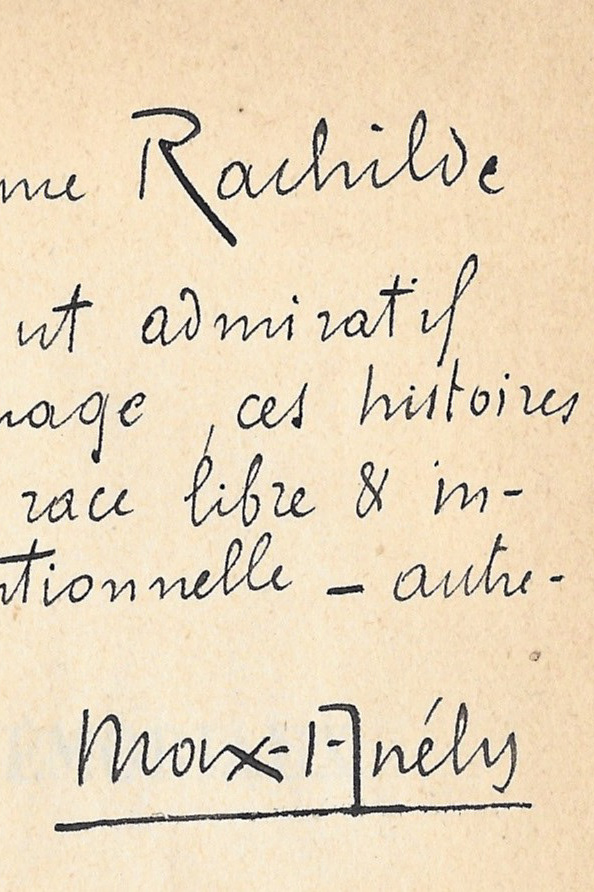 me Rachilde
ut admiratif
mage, ces histoires
race libre & in-
ntionnelle - autre-
Max-Anély